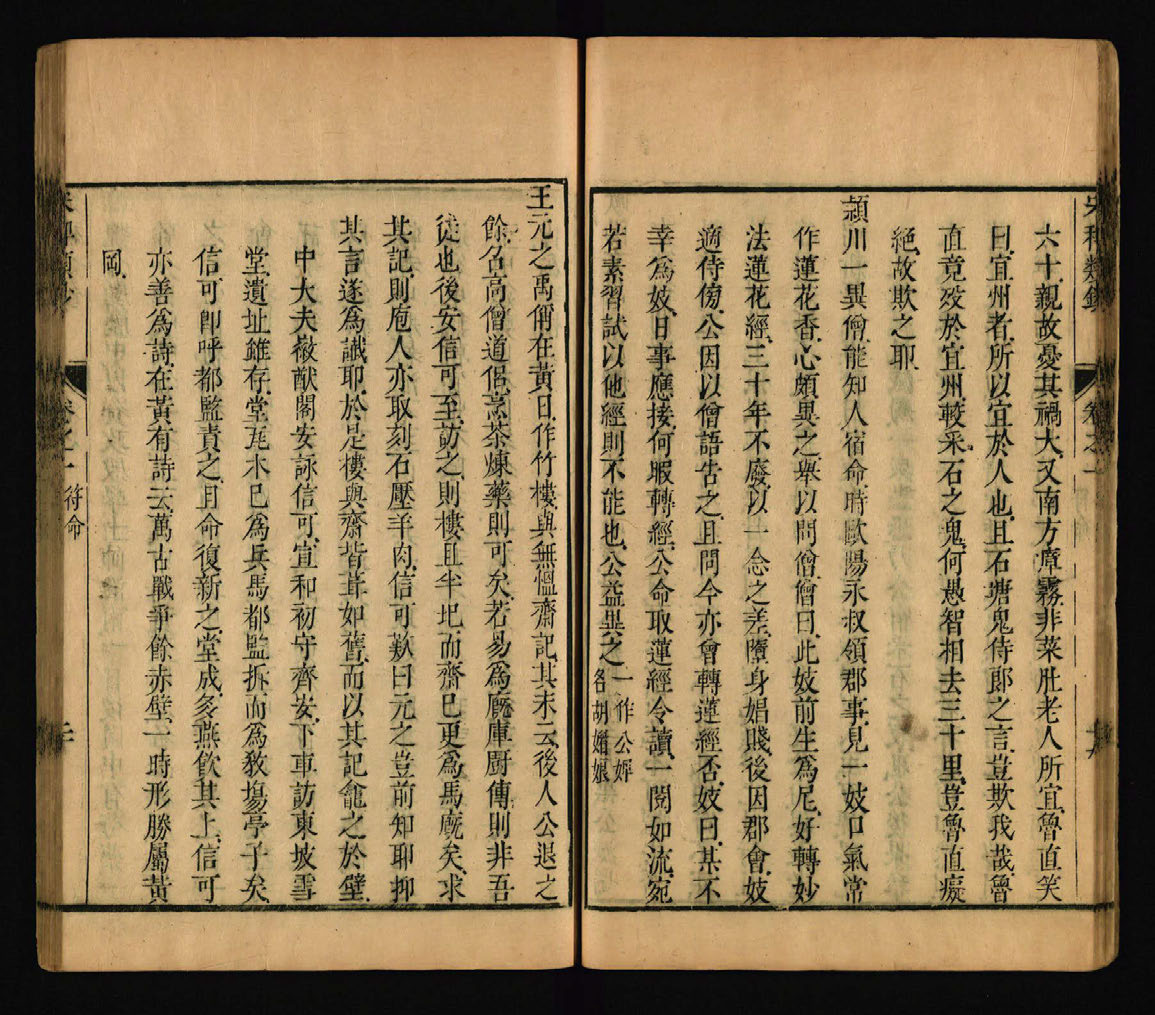 六十親故憂其禍大又南方瘴霧非菜肚老人所宜魯直笑
曰宜州者所以宜於人也且石塘鬼侍郎之言豈欺我哉魯
直竟歿於宜州較采石之鬼何愚智相去三十里豈魯直癡
絕故欺之耶
潁川一異僧能知人宿命時歐陽永叔領郡事見一妓口氣常
作蓮花香心頗異之舉以問僧僧曰此妓前生為尼好轉妙
法蓮花經三十年不廢以一念之差墮身娼賤後因郡會妓
適侍傍公因以僧語告之且問今亦曾轉蓮經否妓曰某不
幸為妓日事應接何暇轉經公命取蓮經令讀一閱如流宛
若素習試以他經則不能也公益異之
一作公婢
名胡媚娘
王元之禹偁在黃日作竹樓與無慍齋記其末云後人公退之
餘名高僧道侶烹茶煉藥則可矣若易為廄庫廚傳則非吾
徒也後安信可至訪之則樓且半圮而齋已更為馬廄矣求
其記則庖人亦取刻石壓羊肉信可歎曰元之豈前知耶抑
其言遂為讖耶於是樓與齋皆葺如舊而以其記龕之於壁
中大夫徽猷閣安詠信可宣和初守齊安下車訪東坡雪
堂遺址雖存堂瓦木已為兵馬都監拆而為教場亭子矣
信可即呼都監責之且命復新之堂成多燕飲其上信可
亦善為詩在黃有詩云萬古戰爭餘赤壁一時形勝屬黃
岡
卷之一 符命